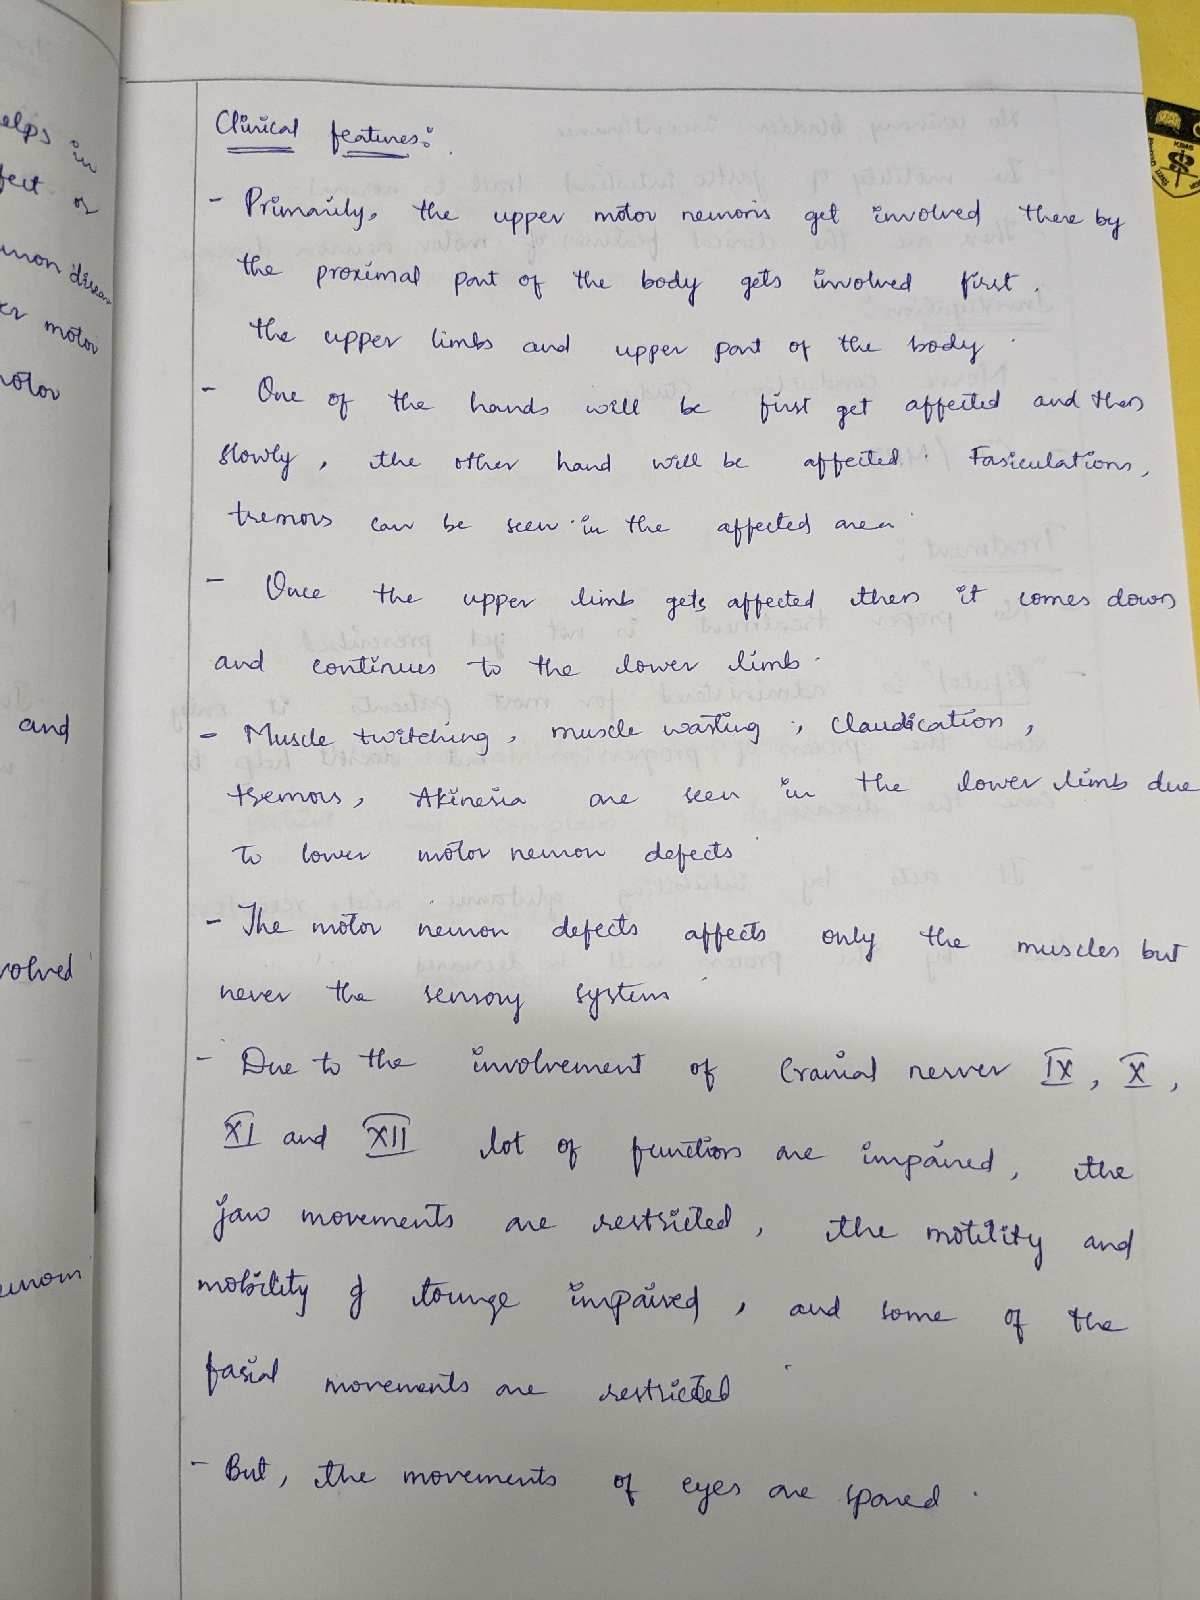 elps in
fect or
disease
er motor
motor
and
volved
Clinical features:
- Primarily, the upper motor neurons get involved there by
the proximal part of the body gets involved first.
the upper limbs and upper part of the body.
- One of the hands will be first get affected and then
slowly, the other hand will be affected. Fasiculations,
tremors can be seen in the affected area.
- Once the upper limb gets affected then it comes down
and continues to the lower limb.
- Muscle twitching, muscle wasting, Claudication,
tremors, Akinesia are seen in the lower limb due
to lower motor neuron defects.
- The motor neuron defects affects only the muscles but
never the sensory system.
- Due to the involvement of Cranial nerver IX, X,
XI and XII lot of function are impaired, the
jaw movements are restricted, the motility and
mobility of tounge impaired, and some of the
fasial movements are restricted
- But, the movements of eyes are spared.
KBMS